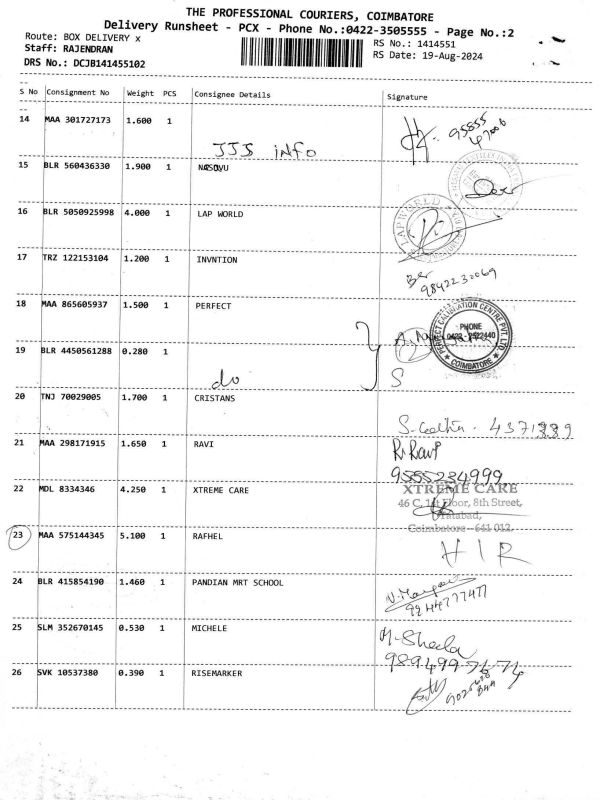 THE PROFESSIONAL COURIERS, COIMBATORE
Delivery Runsheet - PCX - Phone No.:0422-3505555 - Page No.:2
Route: BOX DELIVERY x
Staff: RAJENDRAN
DRS No.: DCJB141455102
RS No.: 1414551
RS Date: 19-Aug-2024
S No Consignment No Weight PCS Consignee Details Signature
14 MAA 301727173 1.600 1
JJJ info
15 BLR 560436330 1.900 1
16 BLR 5050925998 4.000 1 LAP WORLD
LAP WORLD
17 TRZ 122153104 1.200 1 INVNTION
9842232069
18 MAA 865605937 1.500 1 PERFECT
PERFECT CALIBRATION CENTRE PVT. LTD
PHONE
COIMBATORE
19 BLR 4450561288 0.280 1
do
S
20 TNJ 70029005 1.700 1 CRISTANS
21 MAA 298171915 1.650 1 RAVI
R. Ravi
9555234999
22 MDL 8334346 4.250 1 XTREME CARE
XTREME CARE
46 C, 1st Floor, 8th Street,
Tatabad,
Coimbatore - 641 012.
23 MAA 575144345 5.100 1 RAFHEL
H I R
24 BLR 415854190 1.460 1 PANDIAN MRT SCHOOL
9244777477
25 SLM 352670145 0.530 1 MICHELE
M. Sheela
9894997474
26 SVK 10537380 0.390 1 RISEMARKER